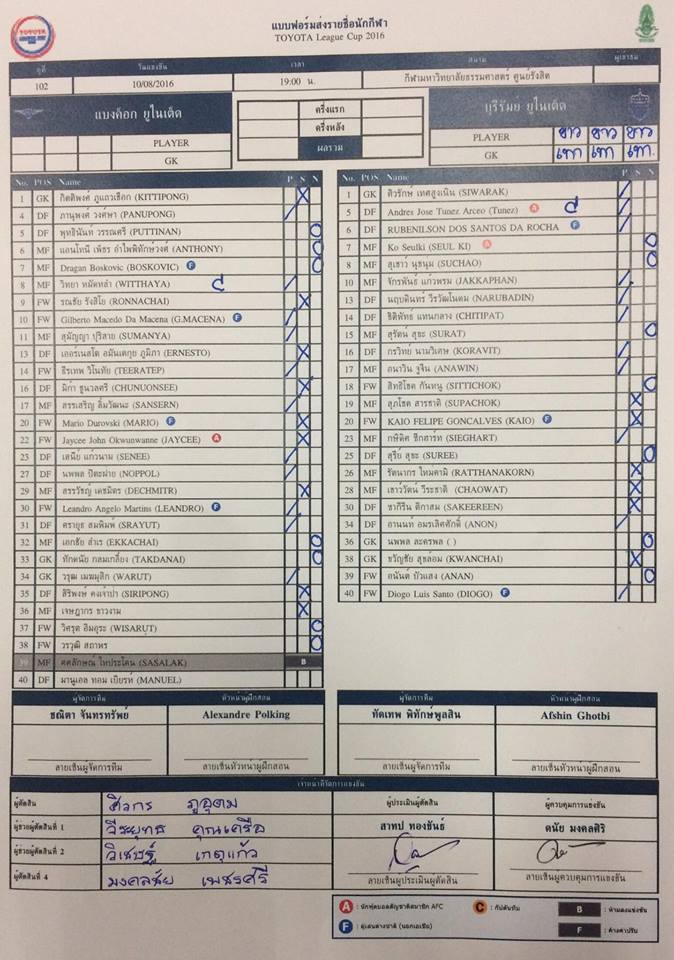 แบบฟอร์มส่งรายชื่อนักกีฬา
TOYOTA League Cup 2016
คู่ที่ วันแข่งขัน เวลา สนาม ผู้เข้าชม
102 10/08/2016 19:00 น. กีฬามหาวิทยาลัยธรรมศาสตร์ ศูนย์รังสิต
แบงค็อก ยูไนเต็ด
PLAYER
GK
ครึ่งแรก
ครึ่งหลัง
ผลรวม
บุรีรัมย์ ยูไนเต็ด
PLAYER ขาว ขาว ขาว
GK เทา เทา เทา.
No. POS Name P S N
1 GK กิตติพงศ์ ภูแถวเชือก (KITTIPONG) X
4 DF ภานุพงศ์ วงศ์ษา (PANUPONG) /
5 DF พุทธินันท์ วรรณศรี (PUTTINAN) O
6 MF แอนโทนี่ เพ็ชร อำไพพิทักษ์วงศ์ (ANTHONY) O
7 MF Dragan Boskovic (BOSKOVIC) F O
8 MF วิทยา หมัดหลำ (WITTHAYA) C /
9 FW รณชัย รังสิโย (RONNACHAI) X
10 FW Gilberto Macedo Da Macena (G.MACENA) F /
11 MF สุมัญญา ปุริสาย (SUMANYA) /
13 DF เออร์เนสโต อมันเตกุย ภูมิภา (ERNESTO) X
14 FW ธีรเทพ วิโนทัย (TEERATEP) /
16 DF มิก้า ชูนวลศรี (CHUNUONSEE) X
17 MF สรรเสริญ ลิ้มวัฒนะ (SANSERN) /
20 FW Mario Durovski (MARIO) F X
22 FW Jaycee John Okwunwanne (JAYCEE) A X
23 DF เสนีย์ แก้วนาม (SENEE) /
27 DF นพพล ปิตะฝ่าย (NOPPOL) /
29 MF สรรวัชญ์ เดชมิตร (DECHMITR) X
30 FW Leandro Angelo Martins (LEANDRO) F /
31 DF ศรายุธ สมพิมพ์ (SRAYUT) /
32 MF เอกชัย สำเร (EKKACHAI) O
33 GK ทักดนัย กลมเกลี้ยง (TAKDANAI) O
34 GK วรุฒ เมฆมุสิก (WARUT) /
35 DF สิริพงษ์ คงเจ้าป่า (SIRIPONG) X
36 MF เจษฎากร ขาวงาม X
37 FW วิศรุต อิ่มอุระ (WISARUT) O
38 FW วรวุฒิ สถาพร O
39 MF ศศลักษณ์ ไหประโคน (SASALAK) B
40 DF มานูเอล ทอม เบียรห์ (MANUEL)
No. POS Name P S N
1 GK ศิวรักษ์ เทศสูงเนิน (SIWARAK) /
5 DF Andres Jose Tunez Arceo (Tunez) A C /
6 DF RUBENILSON DOS SANTOS DA ROCHA F /
7 MF Ko Seulki (SEUL KI) A O
8 MF สุเชาว์ นุชนุ่ม (SUCHAO) O
10 MF จักรพันธ์ แก้วพรม (JAKKAPHAN) /
13 DF นฤบดินทร์ วีรวัฒโนดม (NARUBADIN) /
14 DF ชิติพัทธ์ แทนกลาง (CHITIPAT) /
15 MF สุรัตน์ สุขะ (SURAT) O
16 DF กรวิทย์ นามวิเศษ (KORAVIT) /
17 MF อนาวิน จูจีน (ANAWIN) /
18 FW สิทธิโชค กันหนู (SITTICHOK) O
19 MF สุภโชค สารชาติ (SUPACHOK) X
20 FW KAIO FELIPE GONCALVES (KAIO) F X
23 MF กษิดิศ ซีกฮาร์ท (SIEGHART) /
25 DF สุรีย์ สุขะ (SUREE) O
26 MF รัตนากร ใหม่คามิ (RATTHANAKORN) X
28 MF เชาว์วัฒน์ วีระชาติ (CHAOWAT) X
30 DF ซากีรีน ตีกาสม (SAKEEREEN) X
34 DF อานนท์ อมรเลิศศักดิ์ (ANON) /
36 GK นพพล ละครพล ( ) O
38 GK ขวัญชัย สุขล้อม (KWANCHAI) X
39 FW อนันต์ บัวแสง (ANAN) O
40 FW Diogo Luis Santo (DIOGO) F /
ผู้จัดการทีม หัวหน้าผู้ฝึกสอน
ชณิตา จันทรทรัพย์ Alexandre Polking
ลายเซ็นผู้จัดการทีม ลายเซ็นหัวหน้าผู้ฝึกสอน
ผู้จัดการทีม หัวหน้าผู้ฝึกสอน
ทัดเทพ พิทักษ์พูลสิน Afshin Ghotbi
ลายเซ็นผู้จัดการทีม ลายเซ็นหัวหน้าผู้ฝึกสอน
เจ้าหน้าที่จัดการแข่งขัน
ผู้ตัดสิน ศิวกร ภูอุดม
ผู้ช่วยผู้ตัดสินที่ 1 วีระยุทธ คุณเครือ
ผู้ช่วยผู้ตัดสินที่ 2 วิเชษฐ์ เกตุแก้ว
ผู้ตัดสินที่ 4 มงคลชัย เพชรศรี
ผู้ประเมินผู้ตัดสิน ผู้ควบคุมการแข่งขัน
สาทป ทองขันธ์ ดนัย มงคลศิริ
ลายเซ็นผู้ประเมินผู้ตัดสิน ลายเซ็นผู้ควบคุมการแข่งขัน
A : นักฟุตบอลสัญชาติสมาชิก AFC C : กัปตันทีม B : ห้ามลงแข่งขัน
F : ผู้เล่นต่างชาติ (นอกเอเชีย) F : ค้างค่าปรับ